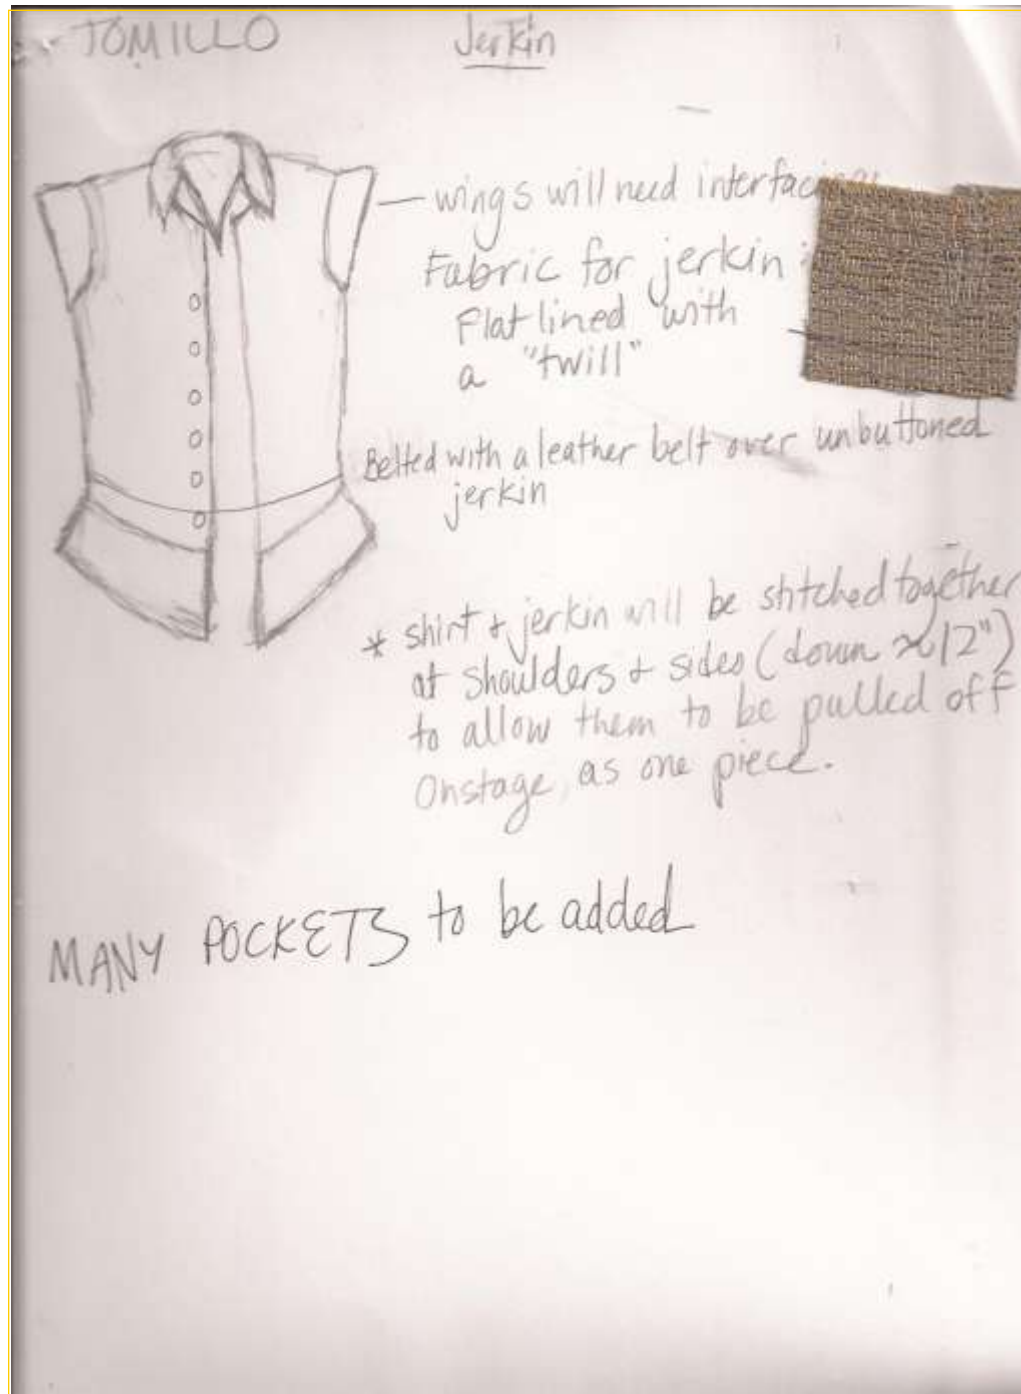 TOMILLO
Jerkin
wings will need interfacing
Fabric for jerkin
flatlined with
a "twill"
Belted with a leather belt over unbuttoned
jerkin
* shirt + jerkin will be stitched together
at shoulders + sides (down ≈12")
to allow them to be pulled off
Onstage as one piece.
MANY POCKETS to be added